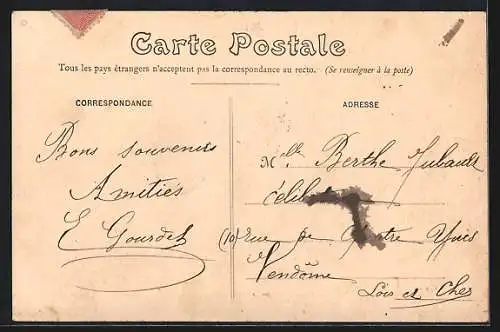 Carte Postale
Tous les pays étrangers n'acceptent pas la correspondance au recto. (Se renseigner à la poste)
CORRESPONDANCE
ADRESSE
Bons souvenirs
Amitiés
E. Gourdet
Melle Berthe Jubault
(10) rue de
Vendôme
Loir et Cher